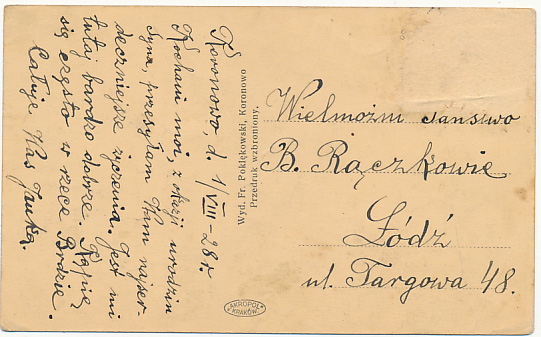 Koronowo, d. 1/VIII-28 r.
Kochani moi, z okazji urodzin
Syna, przesyłam Wam najser-
deczniejsze życzenia. Jest mi
tutaj bardzo dobrze. Kąpię
się często w rzece Brdzie.
Całuję Was Janka.
Wyd. Fr. Poklękowski, Koronowo
Przedruk wzbroniony.
Wielmożni Państwo
B. Rączkowie
Łódź
ul. Targowa 48.
"AKROPOL"
KRAKÓW